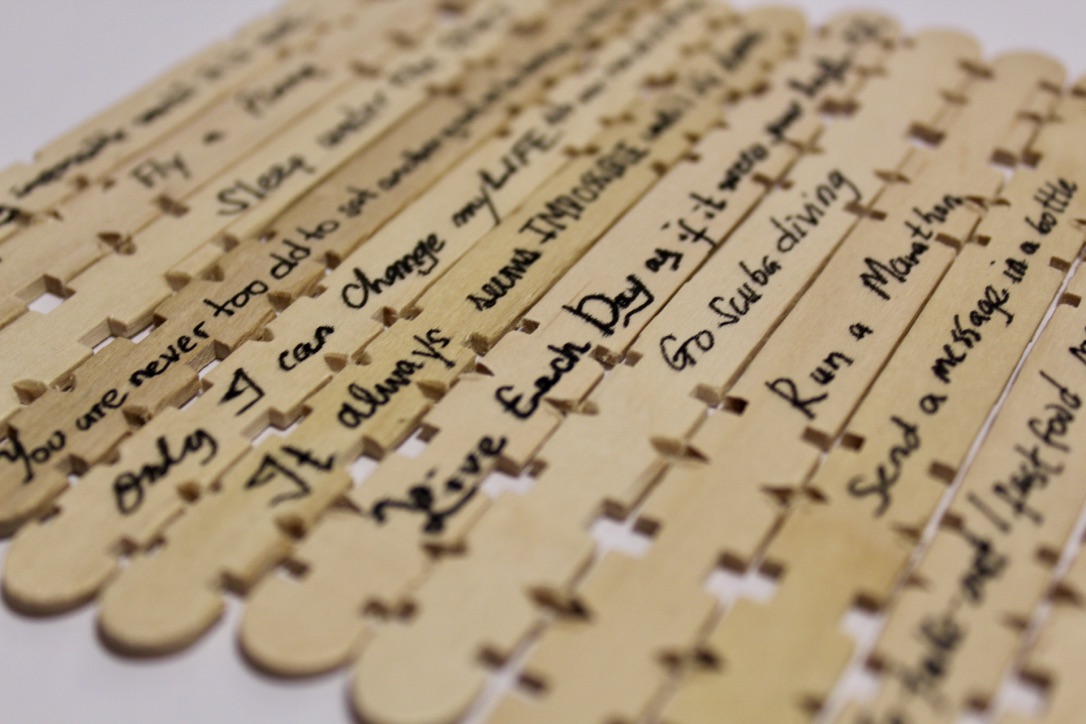 impossible
Fly a Plane
Sleep under the
You are never too old to set another goal
Only I can change my LIFE.
It always seems IMPOSSIBLE until it's done
Live Each Day as if it were your last
Go Scuba diving
Run a Marathon
Send a message in a bottle
take-out / fast food